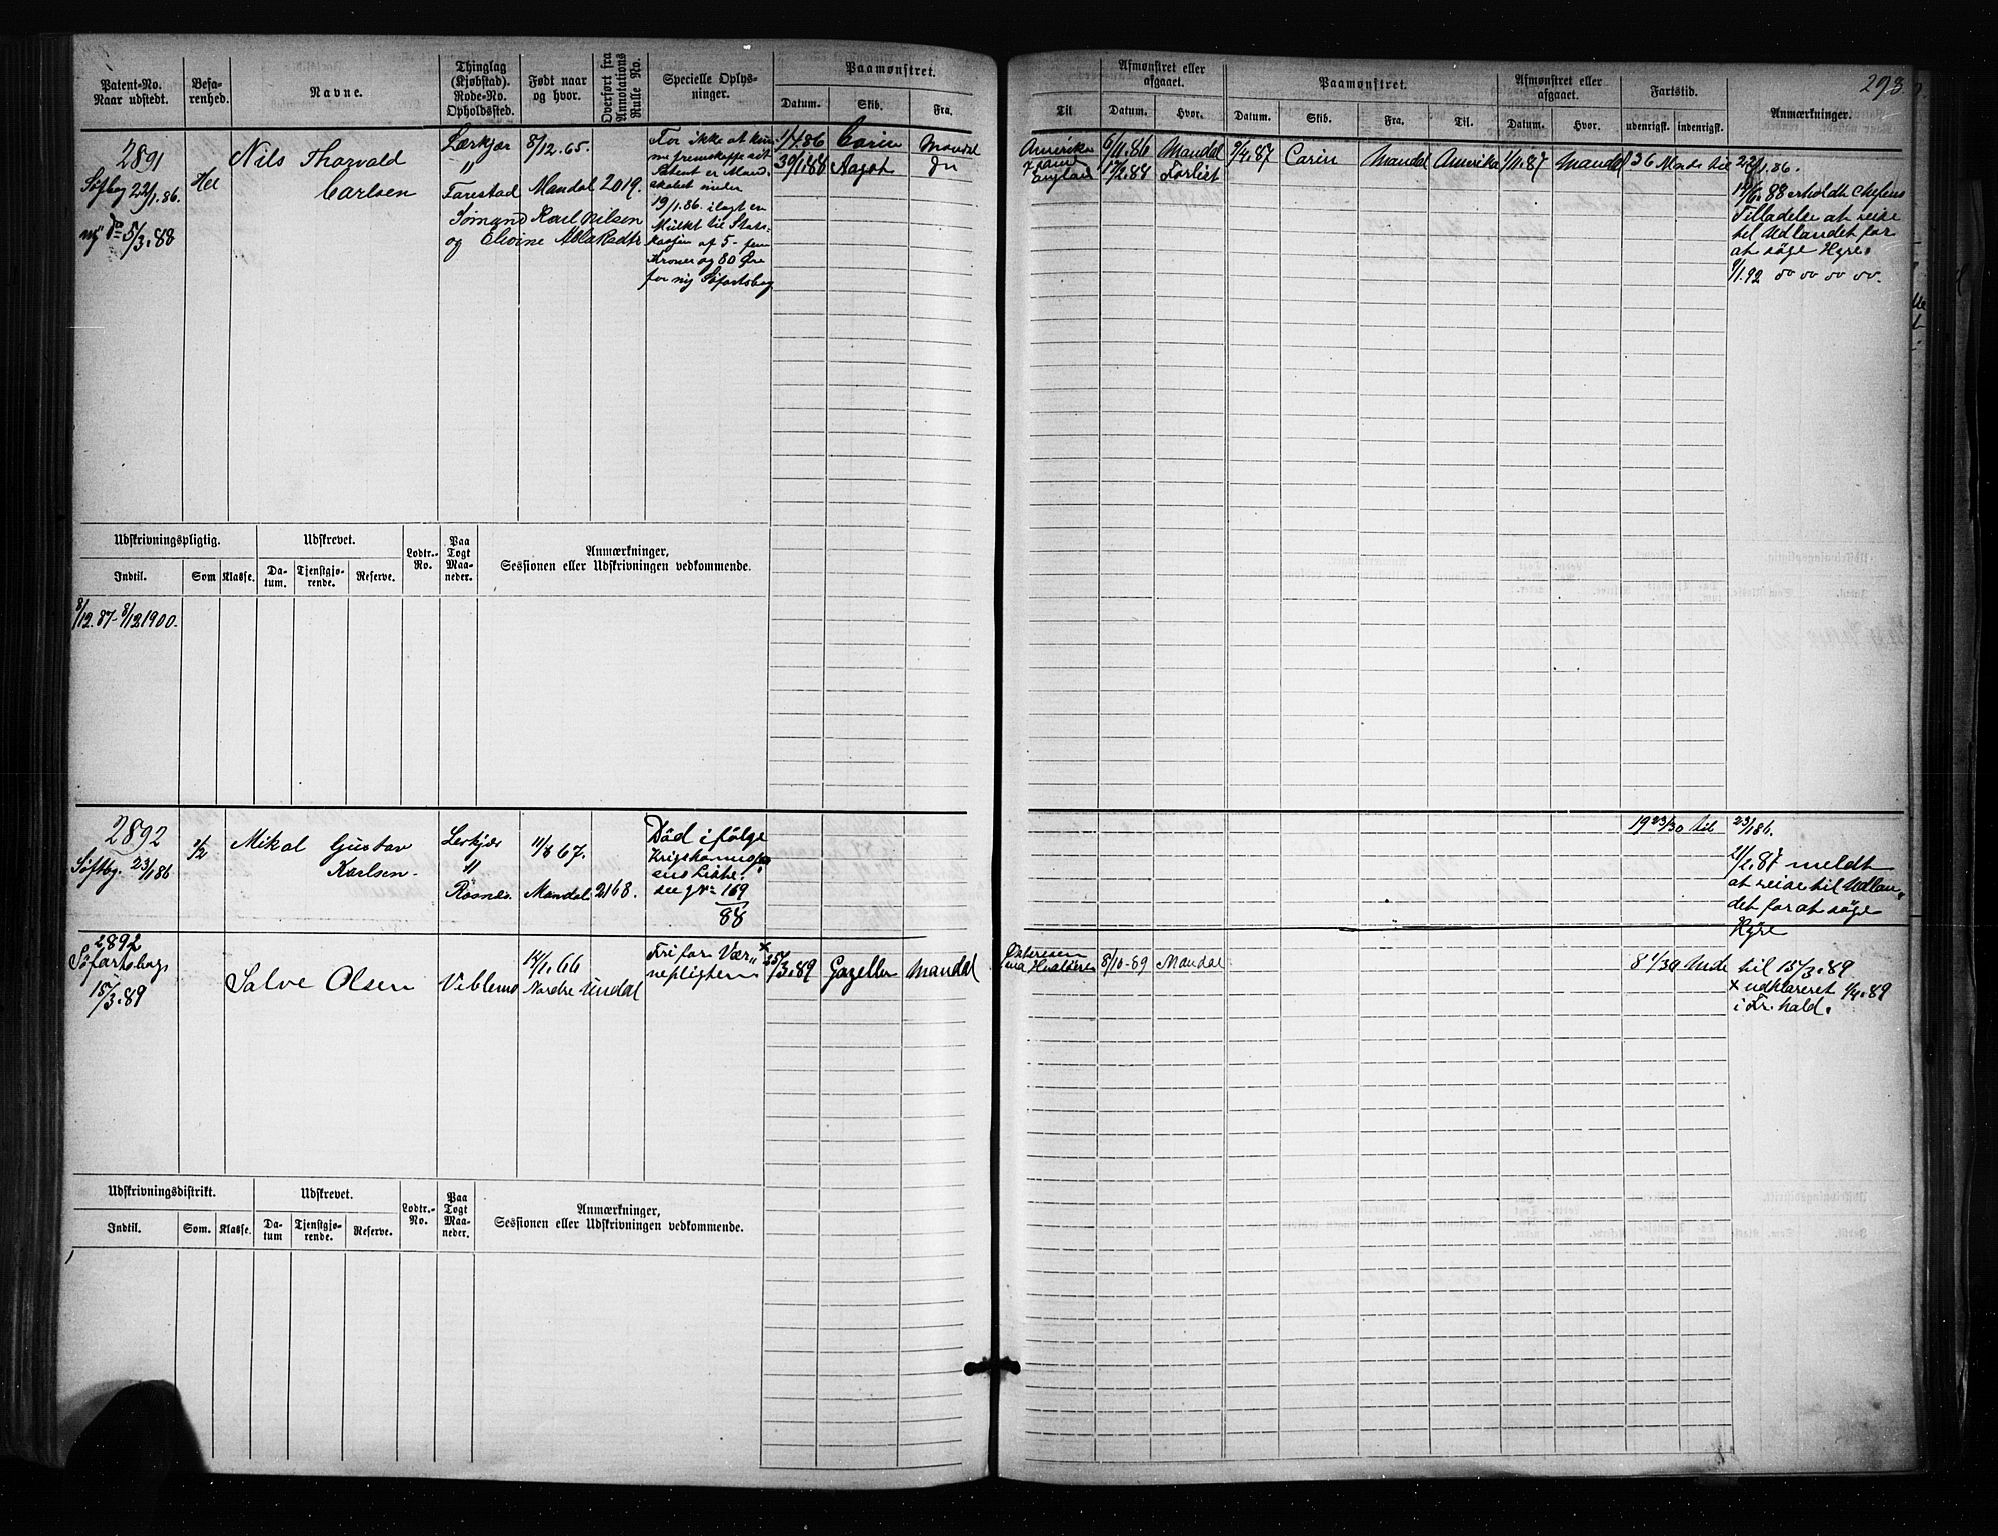 293.
Patent-No.
Naar udstedt.
Befarenhed.
Navne.
Thinglag
(Kjøbstad).
Rode-No.
Opholdssted.
Født naar
og hvor.
Overført fra
Annotations
Rulle No.
Specielle Oplysninger.
Paamønstret.
Datum. Skib. Fra.
Til.
Afmønstret eller
afgaaet.
Datum. Hvor.
Paamønstret.
Datum. Skib. Fra. Til.
Afmønstret eller
afgaaet.
Datum. Hvor.
Fartstid.
udenrigsk. indenrigsk.
Anmærkninger.
2891
Søftbog 22/1.86.
ny do 5/3.88
Hel
Nils Thorvald
Carlsen
Lærkjær
"
Farestad
8/12.65.
Mandal 2019.
Sømand Karl Nilsen
og Elvine
For ikke at kunne
fremskaffe sit
Patent er Mandskabet
under
19/1.86. ilagt en
Mulkt til Statskassen
af 5- fem
Kroner og 80 Øre
for ny Søfartsbog
1/4.86 Carin Mandal
30/1.88 Aagot Do
Amerika 6/11.86 Mandal 9/4.87 Carin Mandal Amerika 1/11.87 Mandal 36 Mdr til 22/1.86.
England 17/2.88 Forliset
erholdt Chefens
Tilladelse at reise
til Udlandet for
at søge Hyre.
9/1.92 do do do do.
Udskrivningspligtig.
Udskrevet.
Lodtr.-
No.
Paa
Togt
Maa-
neder.
Anmærkninger,
Sessionen eller Udskrivningen vedkommende.
Indtil. Som Klasse. Da-
tum. Tjenstgjø-
rende. Reserve.
8/12.87-8/12 1900.
2892
Søftbg. 23/1 86
1/2
Mikal Gustav
Karlsen.
"
67.
Mandal. 2168.
Død i følge
Liste.
see g No 169
88
19 23/30 til 23/1 86.
87 meldt
at reise til Udlandet
for at søge
Hyre
2892
Søfartsbog
15/3.89
Salve Olsen
Viblemo
66
Nordre Undal
Fri for Værnepligten
15/3.89 Gazellen Mandal
8/10-89 Mandal
8 Mdr til 15/3.89
x udklareret 89
i Fr. hald.
Udskrivningsdistrikt.
Udskrevet.
Lodtr.-
No.
Paa
Togt
Maa-
neder.
Anmærkninger,
Sessionen eller Udskrivningen vedkommende.
Indtil. Som. Klasse. Da-
tum Tjenstgjø-
rende. Reserve.